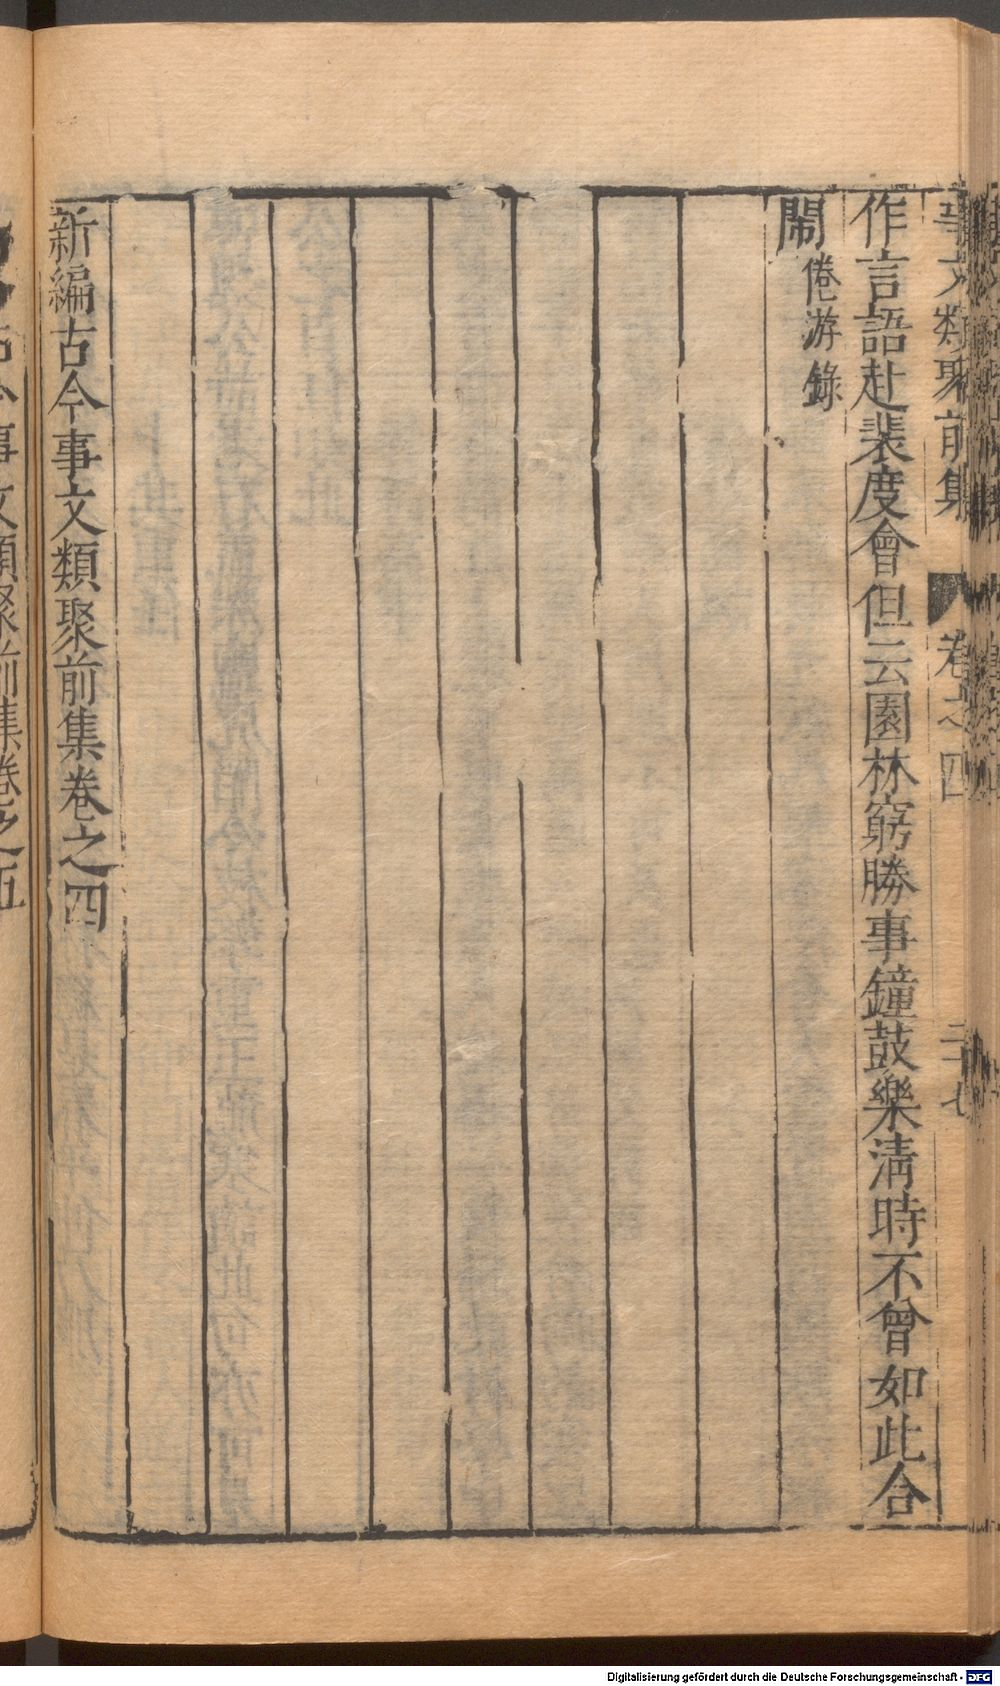 事文類聚前集 卷之四 二十七
作言語赴裴度會但云園林窮勝事鐘鼓樂清時不曾如此合
鬧倦游錄
新編古今事文類聚前集卷之四
古今事文類聚前集卷之五
Digitalisierung gefördert durch die Deutsche Forschungsgemeinschaft - DFG